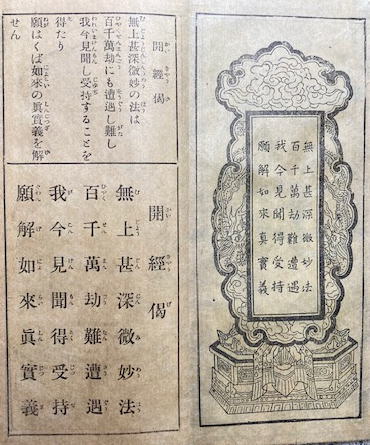 無上甚深微妙法
百千萬劫難遭遇
我今見聞得受持
願解如來真實義
開經偈
無上甚深微妙の法は
百千萬劫にも遭遇し難し
我今見聞し受持することを
得たり
願はくば如來の眞實義を解
せん
開經偈
無上甚深微妙法
百千萬劫難遭遇
我今見聞得受持
願解如來眞實義